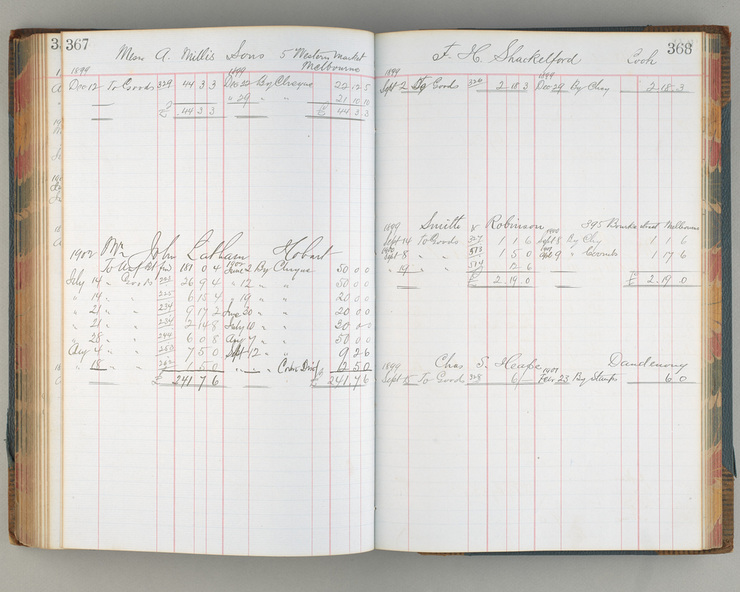 367
Messrs A. Millis Sons 5 Western Market
Melbourne
1899 1899
Dec 12 To Goods 329 44 3 3 Dec 22 By Cheque 22 12 5
" 29 " " 21 10 10
£ 44 3 3 £ 44 3 3
1902 Mr John Latham Hobart
To 181 0 4 June 2 By Cheque 50 0 0
July 14 " Goods 26 9 4 " 12 " " 50 0 0
" 14 " " 225 6 15 4 " 19 " " 20 0 0
" 21 " " 234 9 17 2 " 30 " " 20 0 0
" 21 " " 234 2 14 8 July 10 " " 30 0 0
" 28 " " 244 6 0 8 Aug 7 " " 50 0 0
Aug 4 " " 253 7 5 0 Sept 12 " " 9 2 6
" 18 " " 262 1 5 0 " " " 12 5 0
£ 241 7 6 £ 241 7 6
368
F. H. Shackelford
1899 1899
Sept 2 To Goods 320 2 18 3 Dec 29 By Chq 2 18 3
1899 Smith & Robinson 395 Bourke Street Melbourne
Sept 14 To Goods 327 1 1 6 Sept 8 By Chq 1 1 6
Sept 8 " " 573 1 5 0 9 " 1 17 6
" 19 " " 574 12 6
£ 2 19 0 £ 2 19 0
1899 Chas S. Heape Dandenong
Sept 5 To Goods 328 6/- Febr 23 By Stamps 6 0